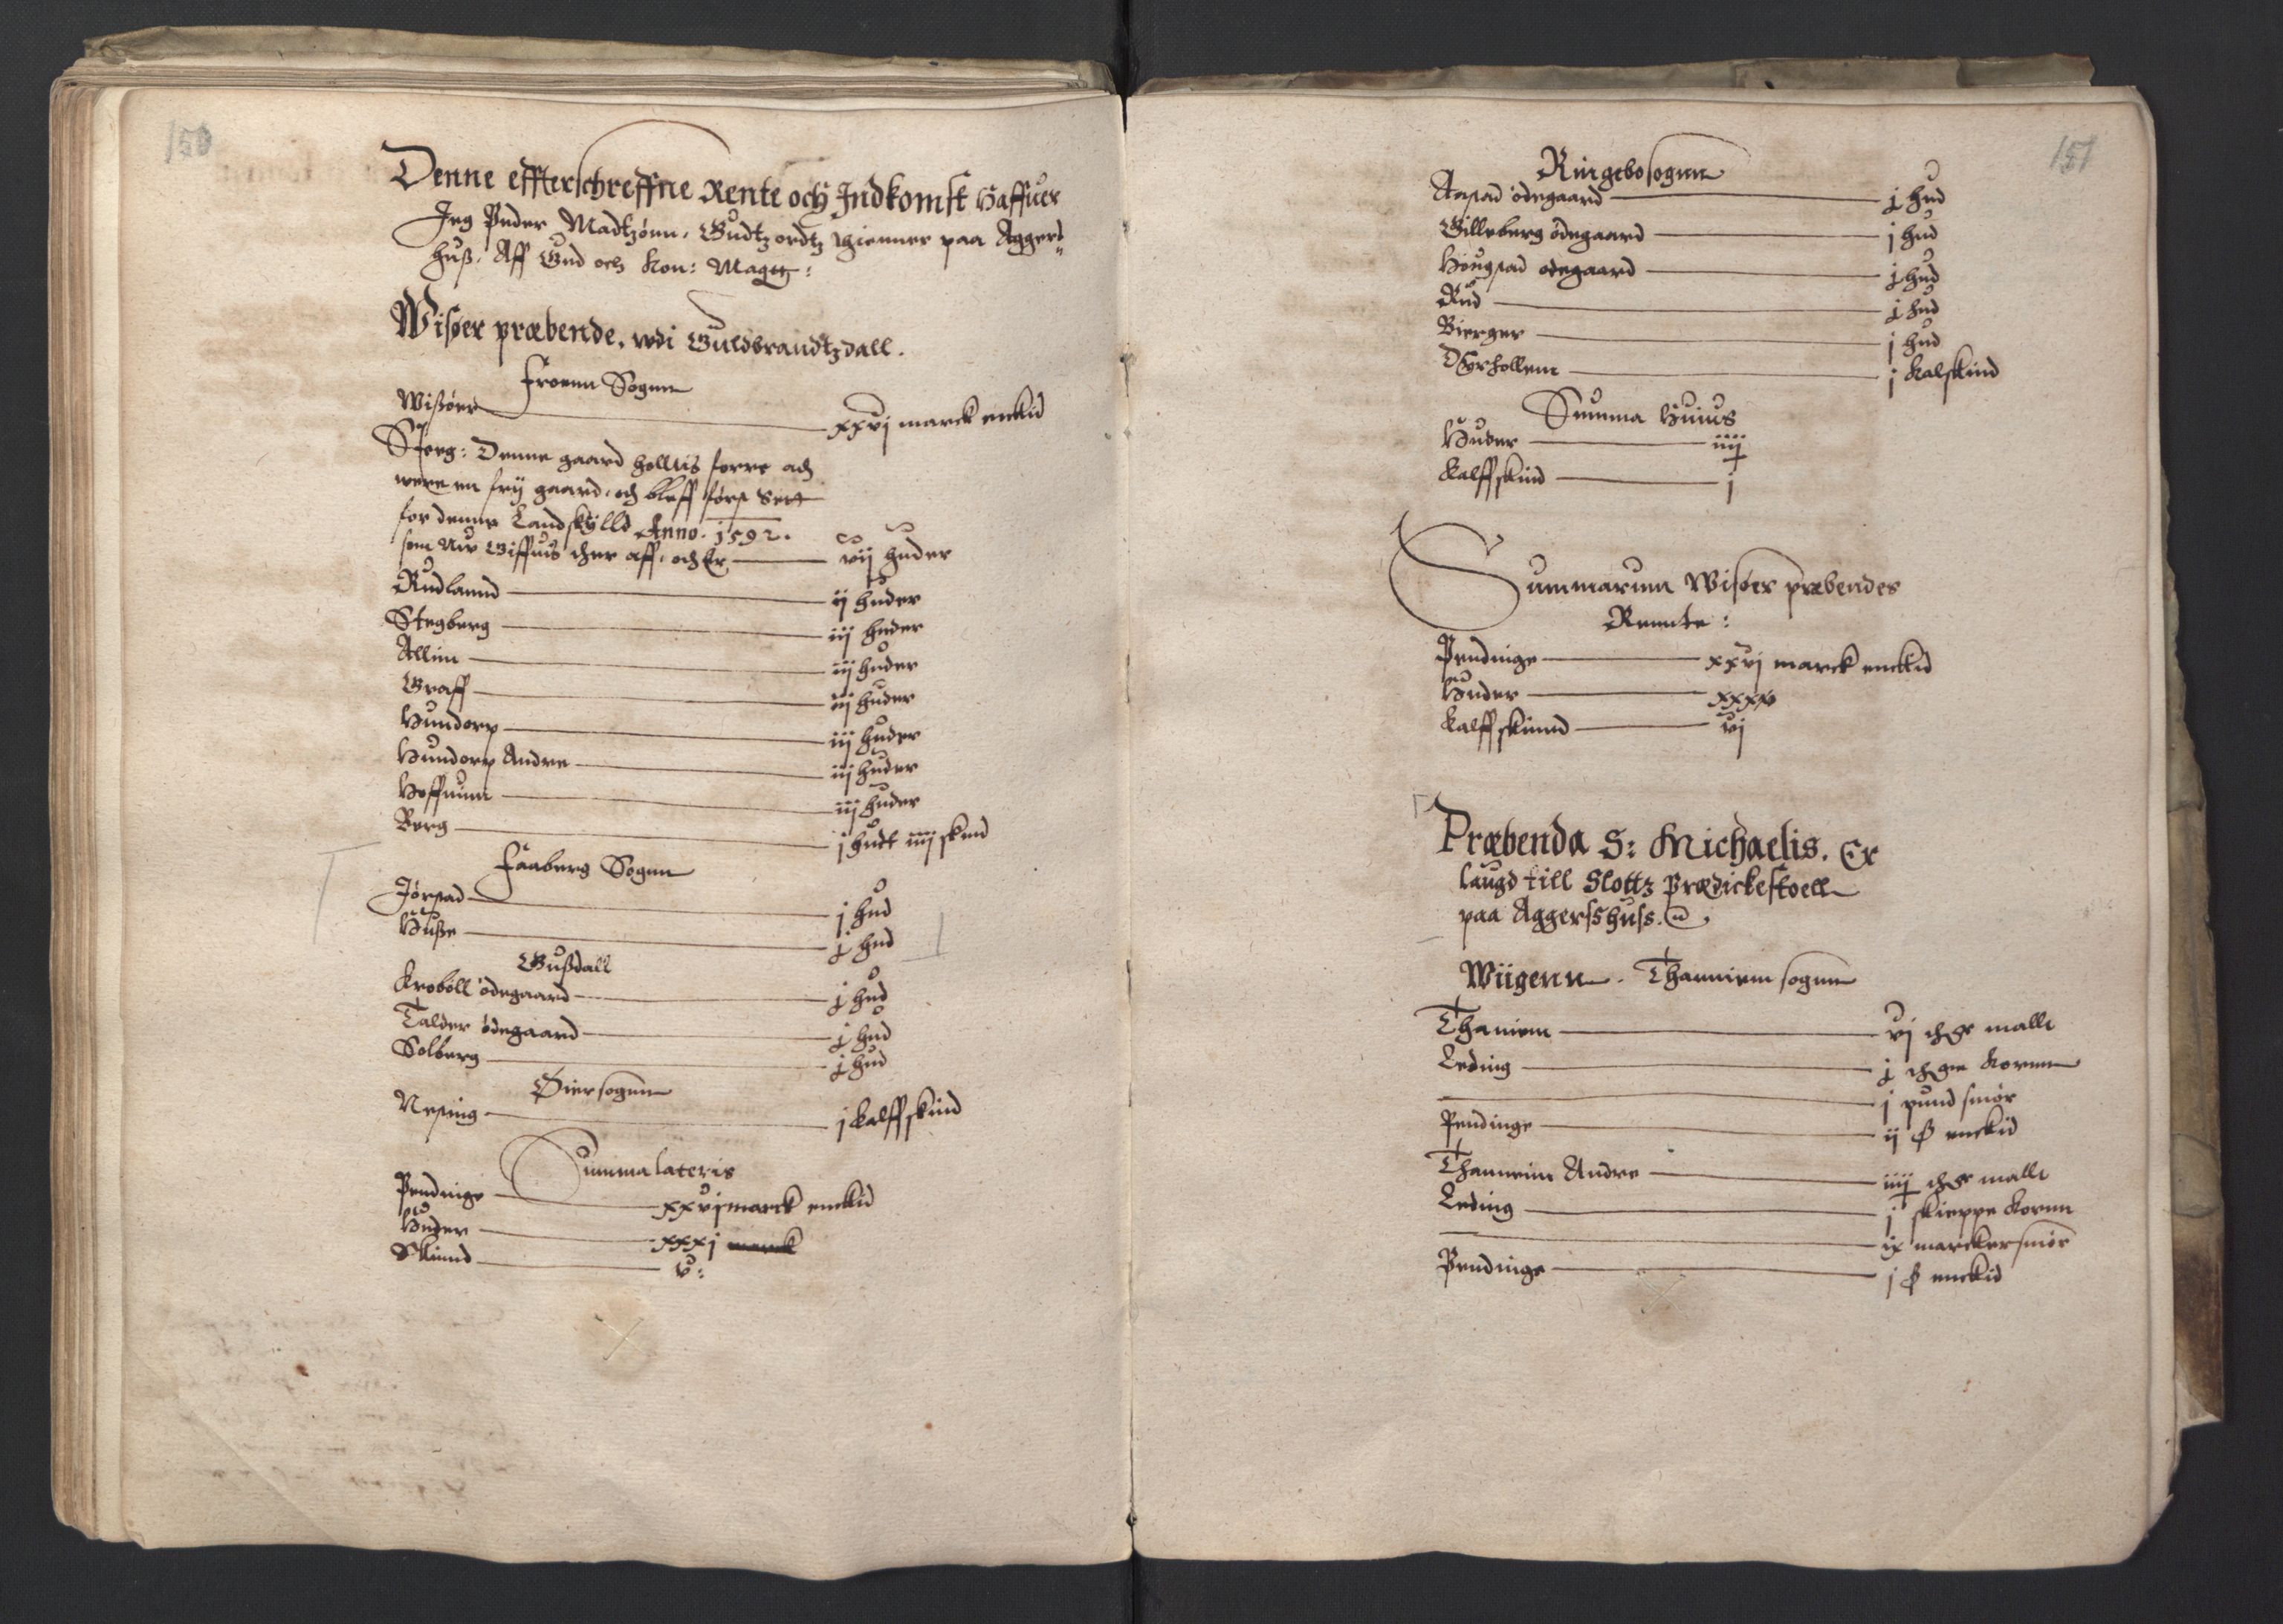 150
Denne effterschreffne Rente och Indkomst Haffuer
Jeg Peder Madtzønn, Gudtz ordtz thienner paa Aggers
huß. Aff Gud och Kon: Maytt:
Wisøer præbende, vdi Guldbrandtzdall.
Froenn Sognn
Wisøer xxvj marck enckid
Steeg: Denne gaard holltis forre att
were en frij gaard, och bleff først Sett
for denne Landskylld Anno. 1592.
som Nu Giffuis ther aff, och Er vij huder
Rudlannd ij huder
Stegberg iij huder
Allim iij huder
Graff iij huder
Hundorp iij huder
Hundorp Andre iij huder
Hoffuum iij huder
Berg j hudt iiij skind
Faaberg Sognn
Jørstad j hud
Huße j hud
Gußdall
Kroböll ödegaard j hud
Talder ödegaard j hud
Solberg j hud
Øier sognn
Nysing j kalffskind
Summa lateris
Pendinge xxvj marck enckid
Huder xxxj marck
Skinnd v:
151
Ringebo sognn
Aastad ödegaard j hud
Gilleberg ödegaard j hud
Hougstad ödegaard j hud
Rud j hud
Bierger j hud
Dyrhollenn j kalskind
Summa Huius
Huder iiij
Kalffskind j
Summarum Wisøer præbendes
Rennte:
Pendinge xxvj marck enckid
Huder xxxv
Kalffskinnd vj
Præbenda S: Michaelis. Er
laugd till Slottz Prædickestoell
paa Aggerszhuss.
Wiigenn. Thanniem sognn
Thaniem vj thge mallt
Leding j thge Kornn
j pund smör
Pendinge ij ß enckid
Thanneim Andre iiij thge mallt
Leding j skieppe Kornn
ix marcker smör
Pendinge j ß enckid